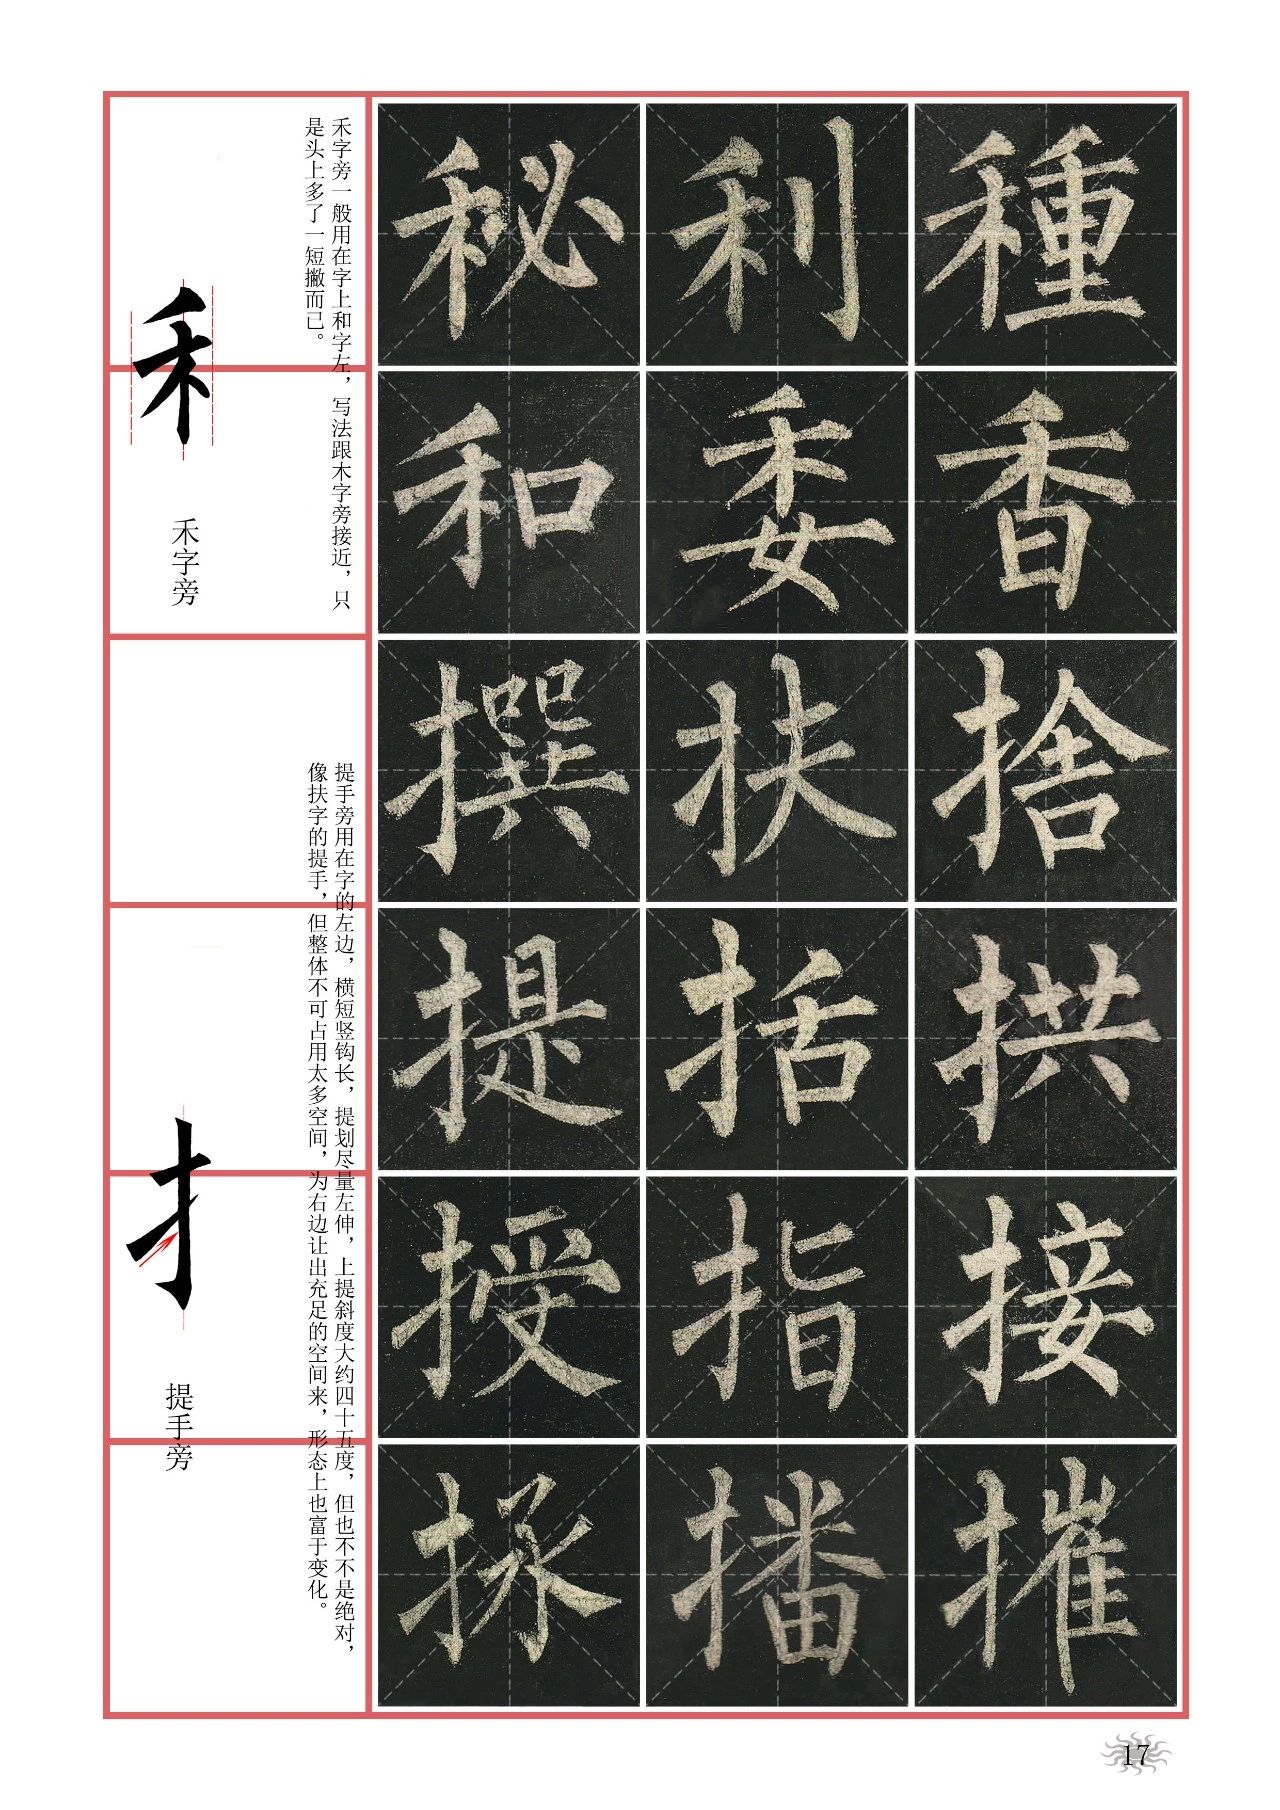 秘利種
和委香
撰扶捨
提括拱
授指接
拯播摧
禾字旁一般用在字上和字左，写法跟木字旁接近，只
是头上多了一短撇而已。
禾
禾字旁
提手旁用在字的左边，横短竖钩长，提划尽量左伸，上提斜度大约四十五度，但也不不是绝对，
像扶字的提手，但整体不可占用太多空间，为右边让出充足的空间来，形态上也富于变化。
扌
提手旁
17